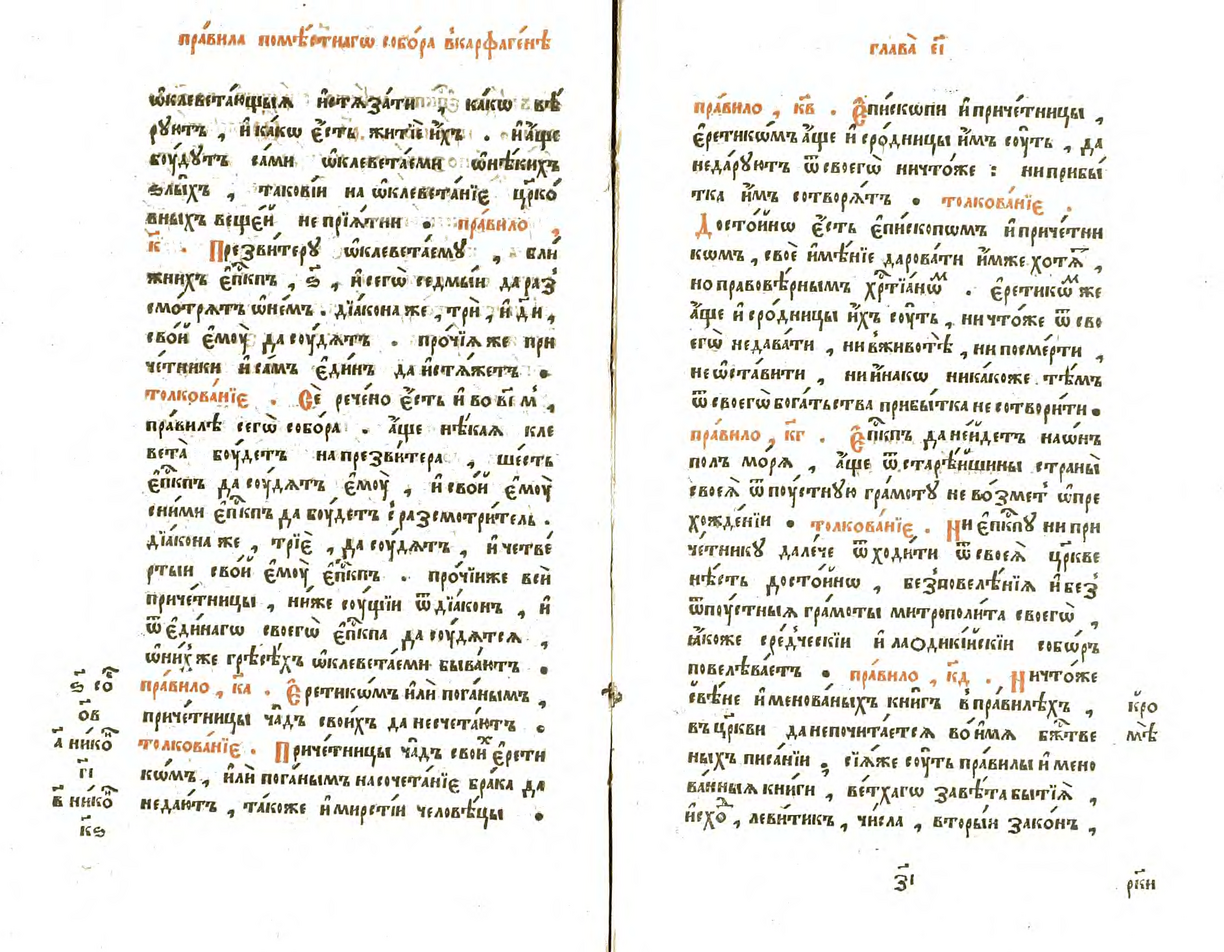 пра́вила помѣ́стнагѡ собо́ра вкарѳаге́нѣ
ѡ҆клевета́ющыѧ и҆стѧза́ти , ка́кѡ вѣ́
рꙋютъ , и҆ка́кѡ є҆́сть житїѐ и҆́хъ . и҆а҆́ще
бꙋ́дꙋтъ са́ми ѡ҆клевета́еми ѿнѣ́кихъ
ѕлы́хъ , такові́и на ѡ҆клевета́нїе црко́
вныхъ веще́й непрїѧ́тни . пра́вило ,
к҃ . Презви́терꙋ ѡ҆клевета́емꙋ , бли́
жнихъ є҆пⷭ҇кпъ , ѕ҃ , и҆сегѡ̀ седмы́и да раз
смо́трѧтъ ѡ҆не́мъ . дїа́кона же , трѝ , и҆ д҃ и҆ ,
сво́й є҆мꙋ̀ да сꙋ́дѧтъ . про́чїѧ же при
че́тники и҆ са́мъ є҆ди́нъ да и҆стѧ́жетъ .
толкова́нїе . Сѐ рече́но є҆́сть и҆ во в҃і м ,
пра́вилѣ сегѡ̀ собо́ра . а҆́ще нѣ́каѧ кле
вета̀ бꙋ́детъ на презви́тера , ше́сть
є҆пⷭ҇кпъ да сꙋ́дѧтъ є҆мꙋ̀ , и҆ сво́й є҆мꙋ̀
сни́ми є҆пⷭ҇кпъ да бꙋ́детъ с̾разсмотри́тель .
дїа́кона же , трїѐ , да сꙋ́дѧтъ , и҆ четве́
ртыи сво́й є҆мꙋ̀ є҆пⷭ҇кпъ . про́чїиже всѝ
приче́тницы , ни́же сꙋ́щїи ѿ дїа́конъ , и҆
ѿ є҆ди́нагѡ своегѡ̀ є҆пⷭ҇кпа да сꙋ́дѧтсѧ ,
ѡ҆ни́хже грѣсѣ́хъ ѡ҆клевета́еми быва́ютъ .
пра́вило , к҃а . Є҆ретикѡ́мъ и҆лѝ пога́нымъ ,
приче́тницы ча̑дъ свои́хъ да несчета́ютъ .
толкова́нїе . Приче́тницы ча̑дъ свои́ⷯ є҆рети
кѡ́мъ , и҆лѝ пога́нымъ насочета́нїе бра́ка да
недаю́тъ , та́коже и҆ мирсті́и человѣ́цы .
ѕ҃ со́ⷠ
о҃в
а҃ нико́ⷩ
г҃і
в҃ нико́ⷩ
к҃ѕ
глава̀ е҃і
пра́вило , к҃в . Є҆пи́скопи и҆ приче́тницы ,
є҆ретикѡ́мъ а҆́ще и҆ сро́дницы и҆́мъ сꙋ́ть , да
неда́рꙋютъ ѿ своегѡ̀ ничто́же : ни прибы́
тка и҆́мъ сотворѧ́тъ . толкова́нїе .
Досто́йно є҆́сть є҆пи́скопѡмъ и҆ приче́тни
кѡмъ , своѐ и҆мѣ́нїе дарова́ти и҆́мже хотѧ́ⷮ ,
но правовѣ́рнымъ хрⷭ҇тїа́нѡⷨ . є҆ретикѡ́ⷨ же
а҆́ще и҆ сро́дницы и҆́хъ сꙋ́ть , ничто́же ѿ сво
егѡ̀ недава́ти , ни вживотѣ̀ , ни посме́рти ,
не ѡ҆ста́вити , ни и҆на́кѡ ника́коже тѣ́мъ
ѿ своегѡ̀ бога́тьства прибы́тка не сотвори́ти .
пра́вило , к҃г . Є҆пⷭ҇кпъ да не и҆́детъ на ѡ҆́нъ
по́лъ мо́рѧ , а҆́ще ѿ старѣ́йшины страны̀
своеѧ̀ ѿпꙋ́стнꙋю гра́мотꙋ не во́зметъ ѡ҆пре
хожде́нїи . толкова́нїе . Ни є҆пⷭ҇кпꙋ ни при
че́тникꙋ дале́че ѿходи́ти ѿ своеѧ̀ цр҃кве
нѣ́сть досто́йно , безповелѣ́нїѧ и҆ без
ѿпꙋ́стныѧ гра́моты митрополи́та своегѡ̀ ,
ꙗ҆́коже сре́дческїи и҆ лаодикі́йскїи собо́ръ
повелѣва́етъ . пра́вило , к҃д . Ничто́же
свѣ́не и҆менова́ныхъ кни́гъ впра́вилѣхъ ,
въ цр҃кви да непочита́етсѧ во и҆́мѧ бжⷭ҇тве
ныхъ писа́нїи . сїѧ́же сꙋ́ть пра́вилы и҆мено
ва́нныѧ кни́ги , ве́тхагѡ завѣ́та бытїѧ̀ ,
и҆схо́ⷣ , леви́тикъ , чи́сла , вторы́и зако́нъ ,
кро
мѣ
з҃і
рк҃и